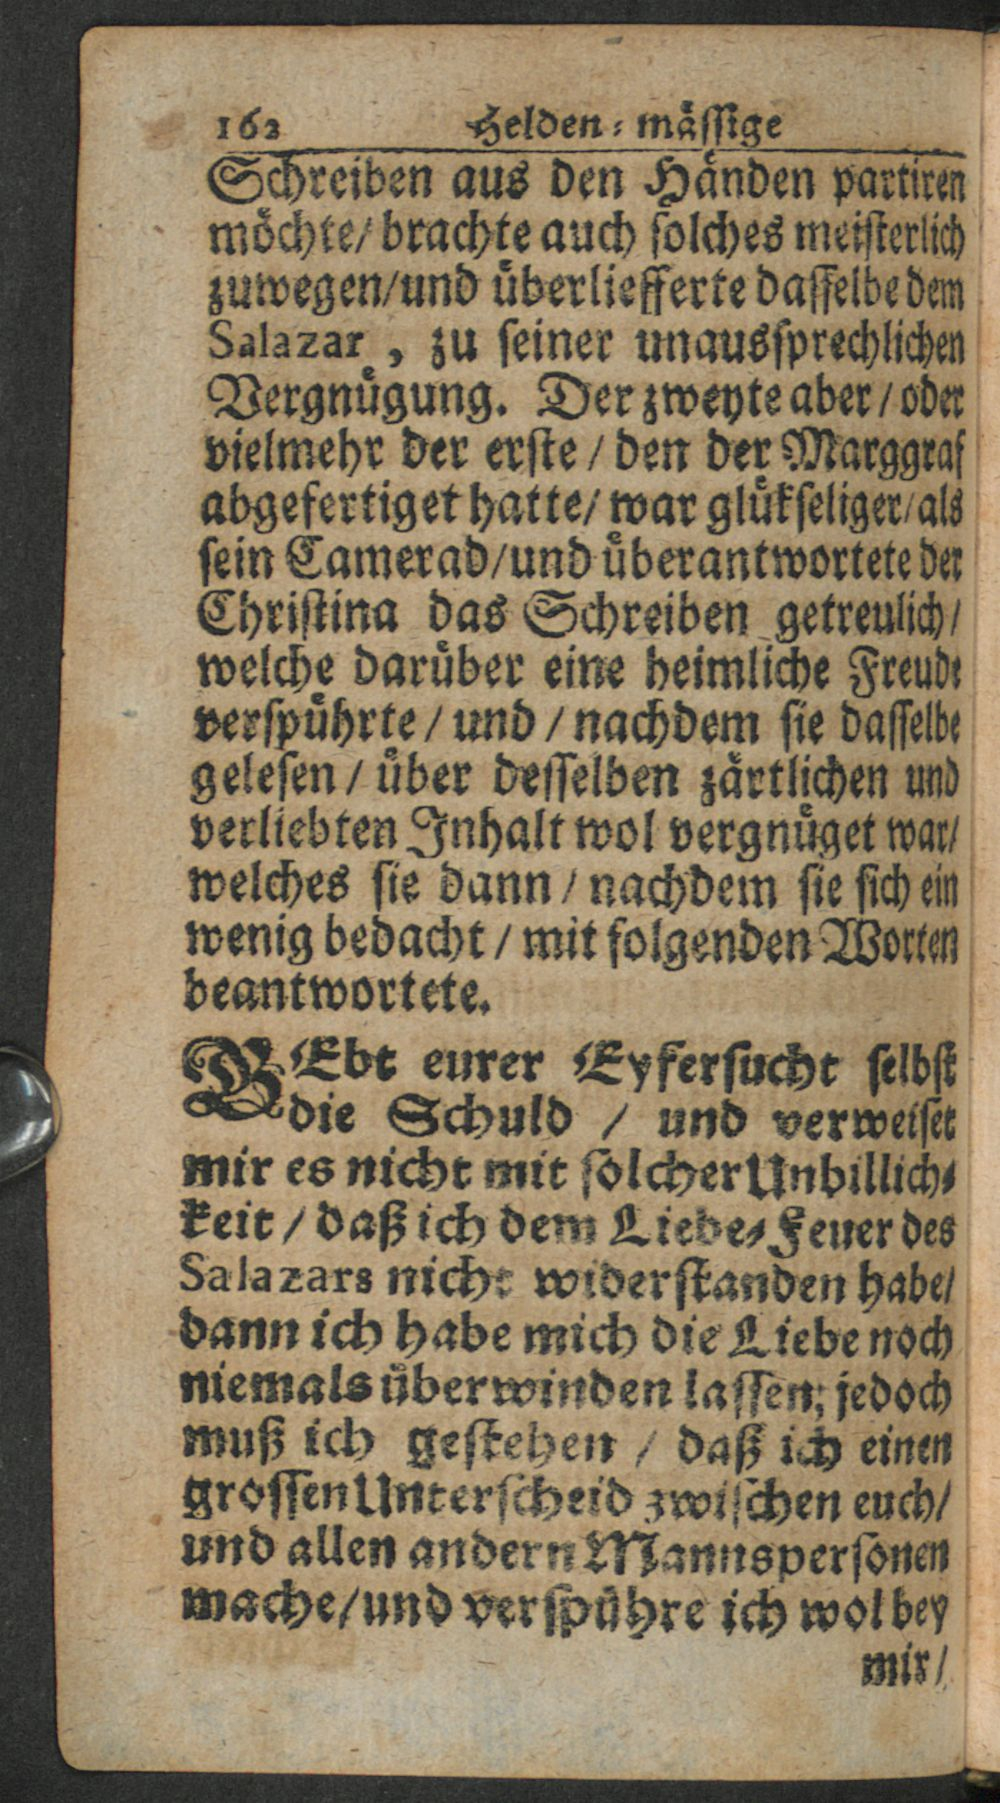 162 Helden-mässige
Schreiben aus den Händen partiren
möchte/ brachte auch solches meisterlich
zuwegen/und überliefferte dasselbe dem
Salazar, zu seiner unaussprechlichen
Vergnügung. Der zweyte aber / oder
vielmehr der erste / den der Marggraf
abgefertiget hatte/ war glükseliger/ als
sein Camerad/und überantwortete der
Christina das Schreiben getreulich/
welche darüber eine heimliche Freude
verspührte / und / nachdem sie dasselbe
gelesen / über desselben zärtlichen und
verliebten Inhalt wol vergnüget war/
welches sie dann / nachdem sie sich ein
wenig bedacht / mit folgenden Worten
beantwortete.
GEbt eurer Eyfersucht selbst
die Schuld / und verweiset
mir es nicht mit solcher Unbillich-
keit / daß ich dem Liebes-Feuer des
Salazars nicht widerstanden habe/
dann ich habe mich die Liebe noch
niemals überwinden lassen; jedoch
muß ich gestehen / daß ich einen
grossen Unterscheid zwischen euch/
und allen andern Mannspersonen
mache/und verspühre ich wol bey
mir/